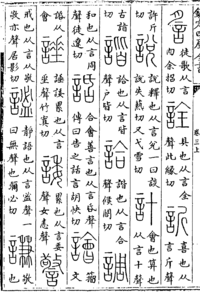 䚻徒歌从言肉余招切詮具也从言全聲此緣切訢喜也从言斤聲
許斤切說說釋也从言兌一曰談說失爇切又弋雪切計會也筭也从言从十
古詣切諧詥也从言皆聲戶皆切詥諧也从言合聲候閤切調
和也从言周聲徒遼切話合會善言也从言𠯑聲傳曰告之話言胡快切譮籒文
諈諈諉纍也从言垂聲竹寘切諉纍也从言委聲女恚切警
戒也从言从敬敬亦聲居影切謐靜語也从言𥁑聲一曰無聲也彌必切謙敬也